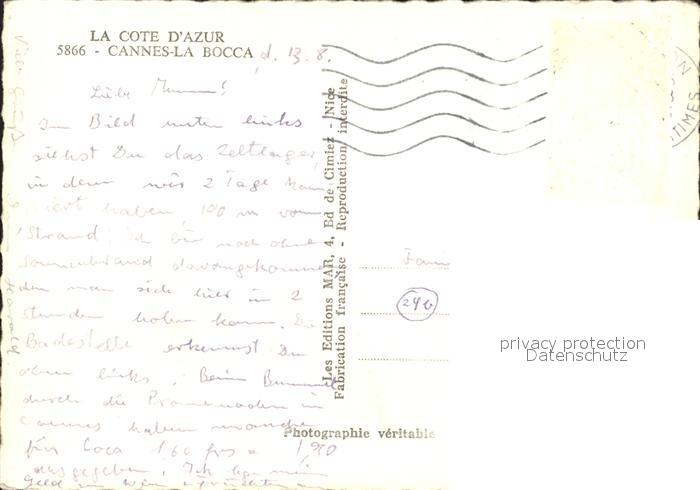 LA COTE D'AZUR
5866 - CANNES-LA BOCCA
d. 13.8.
Liebe
Im Bild unten links
siehst Du das Zeltlager,
in dem wir 2 Tage kam-
piert haben, 100 m vom
Strand. Ich bin noch ohne
Sonnenbrand davongekommen
den man sich hier in 2
Stunden holen kann. Die
Badestelle erkennst Du
oben links. Beim Bummel
durch die Promenaden in
Cannes haben manche
für Coca 160 frs = 1,90
ausgegeben. Ich lege mein
Geld in
Les Editions MAR, 4, Ed de Cimiez - Nice
Fabrication française - Reproduction interdite
Fam
24b
privacy protection
Datenschutz
Photographie véritable
TIMES